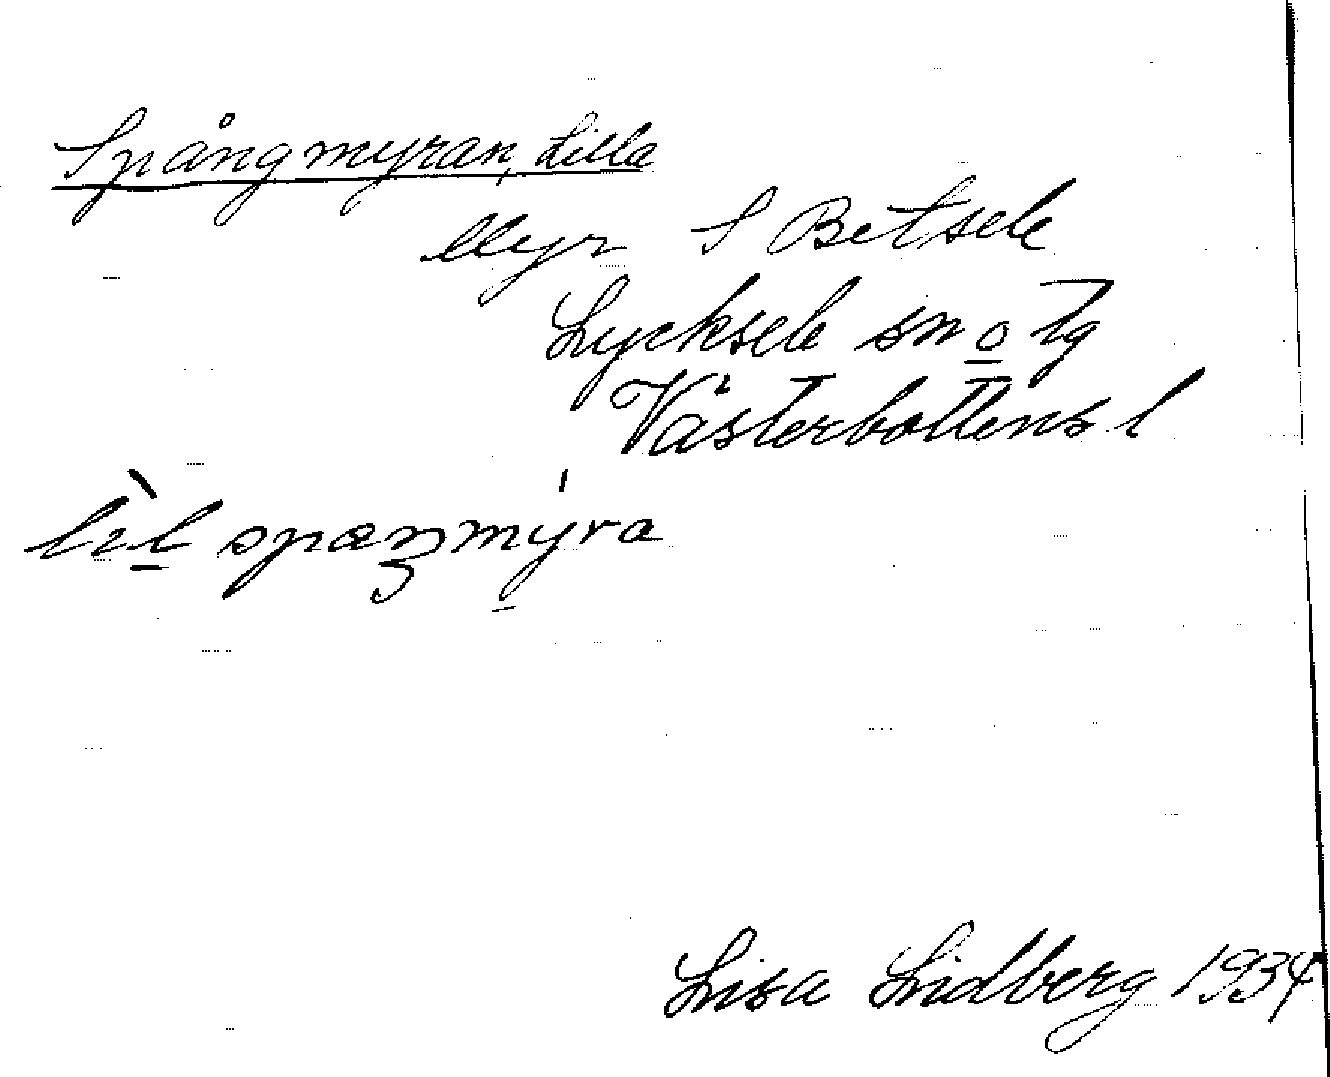 Spångmyran, Lilla
Myr S Betsele
Lycksele sn o tg
Västerbottens l
lìl spæŋmýra
Lisa Lidberg 1934